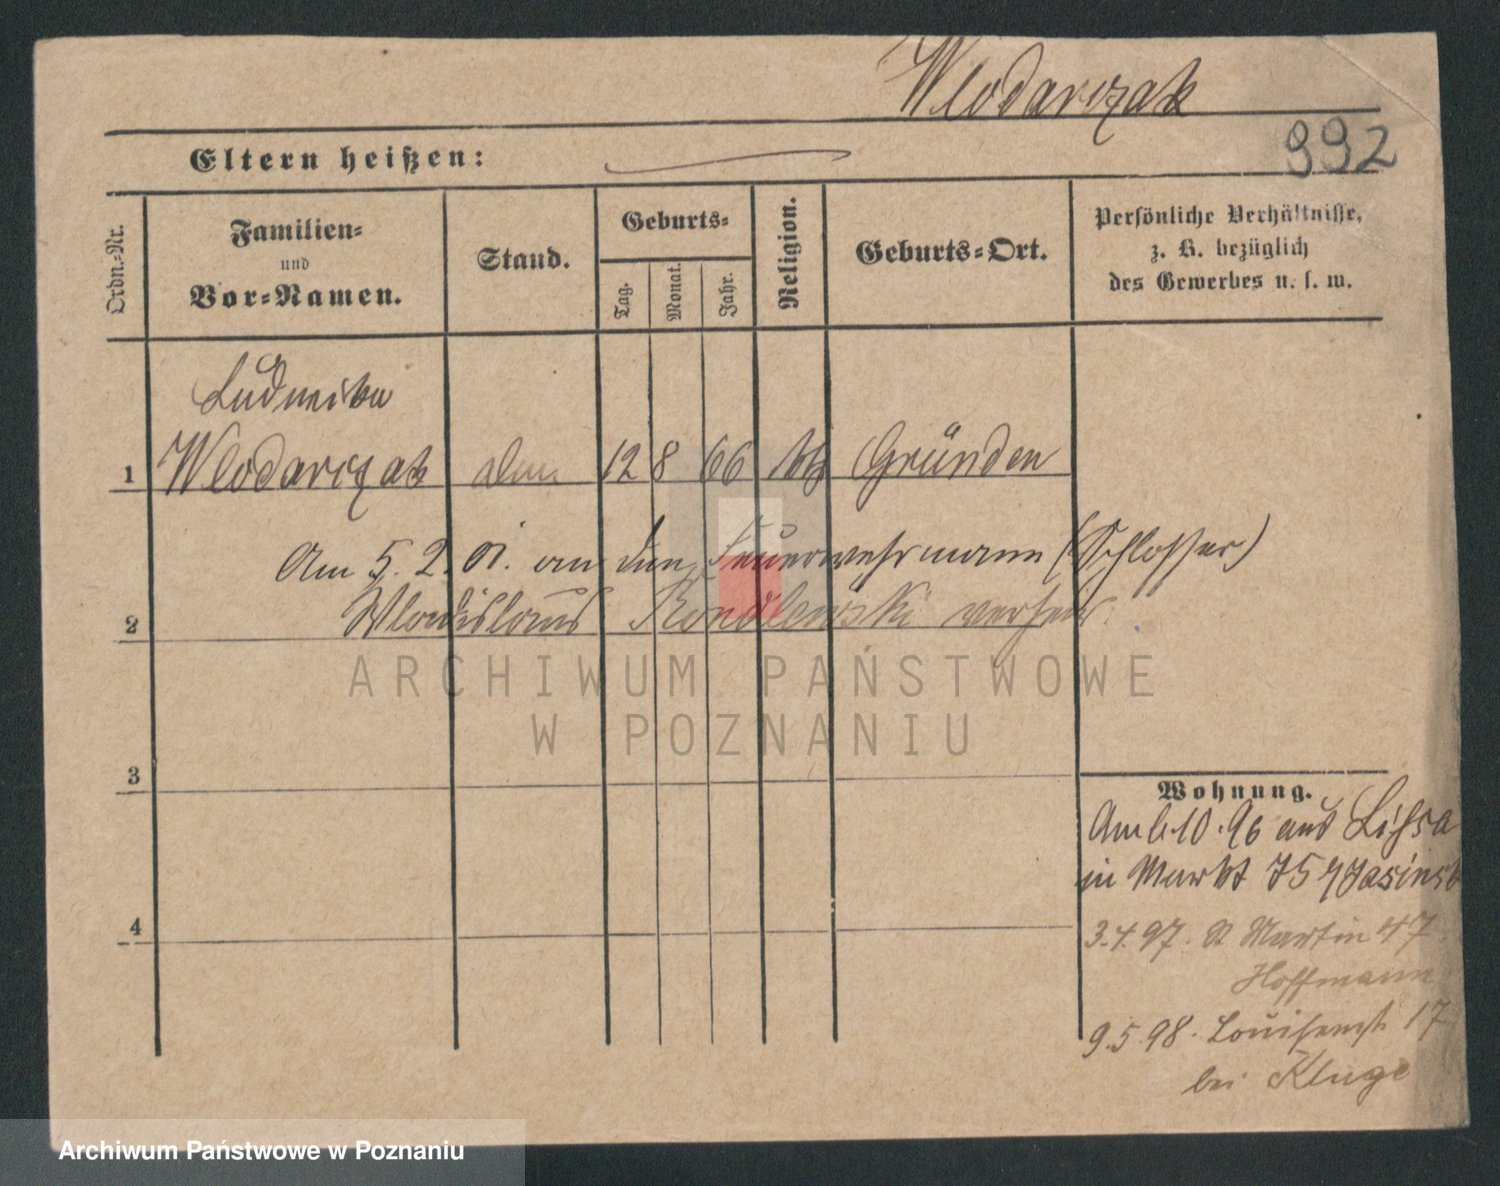 Wlodarczak
992
Eltern heißen:
Ordn.-Nr.
Familien-
und
Vor-Namen.
Stand.
Geburts-
Tag.
Monat.
Jahr.
Religion.
Geburts-Ort.
Persönliche Verhältnisse,
z. B. bezüglich
des Gewerbes u. s. w.
Ludwika
1 Wlodarczak 12 8 66 kth Gründen
Am 5. 2. 01. an den Feuerwehrmann (Schlosser)
2 Wladislaus verheir.
3
4
Wohnung.
Am 6.10.96 aus Lissa
in Markt 75 Jasinsk
3.4.97. St Martin 47
Hoffmann
9.5.98. Louisenst. 17
bei Kluge
ARCHIWUM PAŃSTWOWE
W POZNANIU
Archiwum Państwowe w Poznaniu